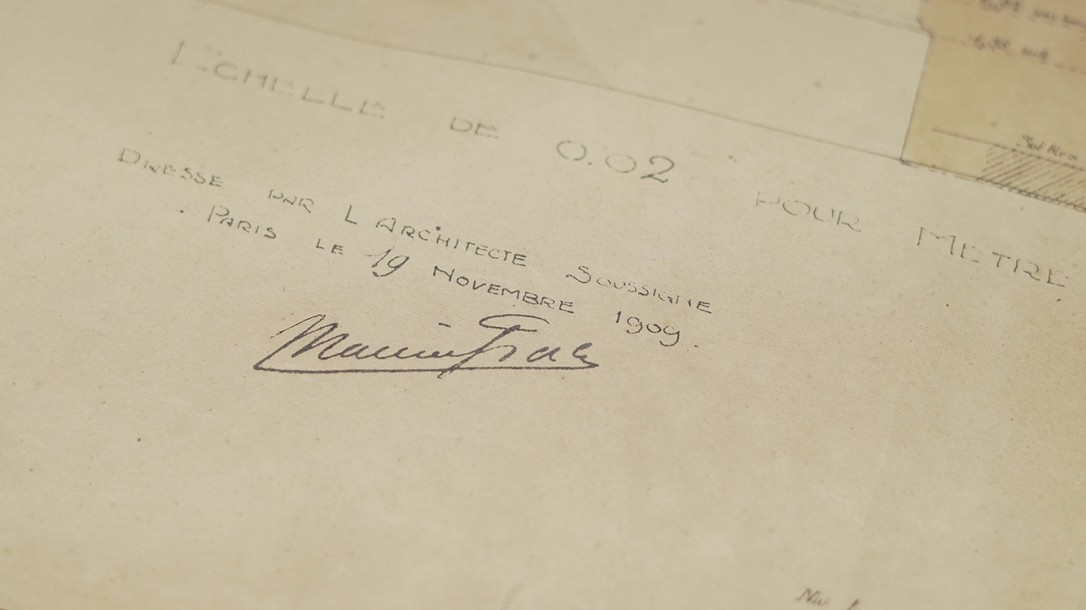 ECHELLE DE 0.02 POUR METRE
DRESSE PAR L ARCHITECTE SOUSSIGNE
PARIS LE 19 NOVEMBRE 1909.